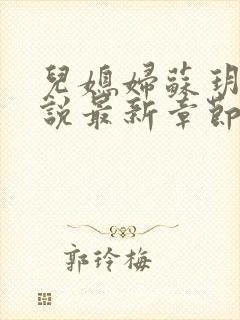 兒媳婦蘇玥
說最新章節
郭玲梅